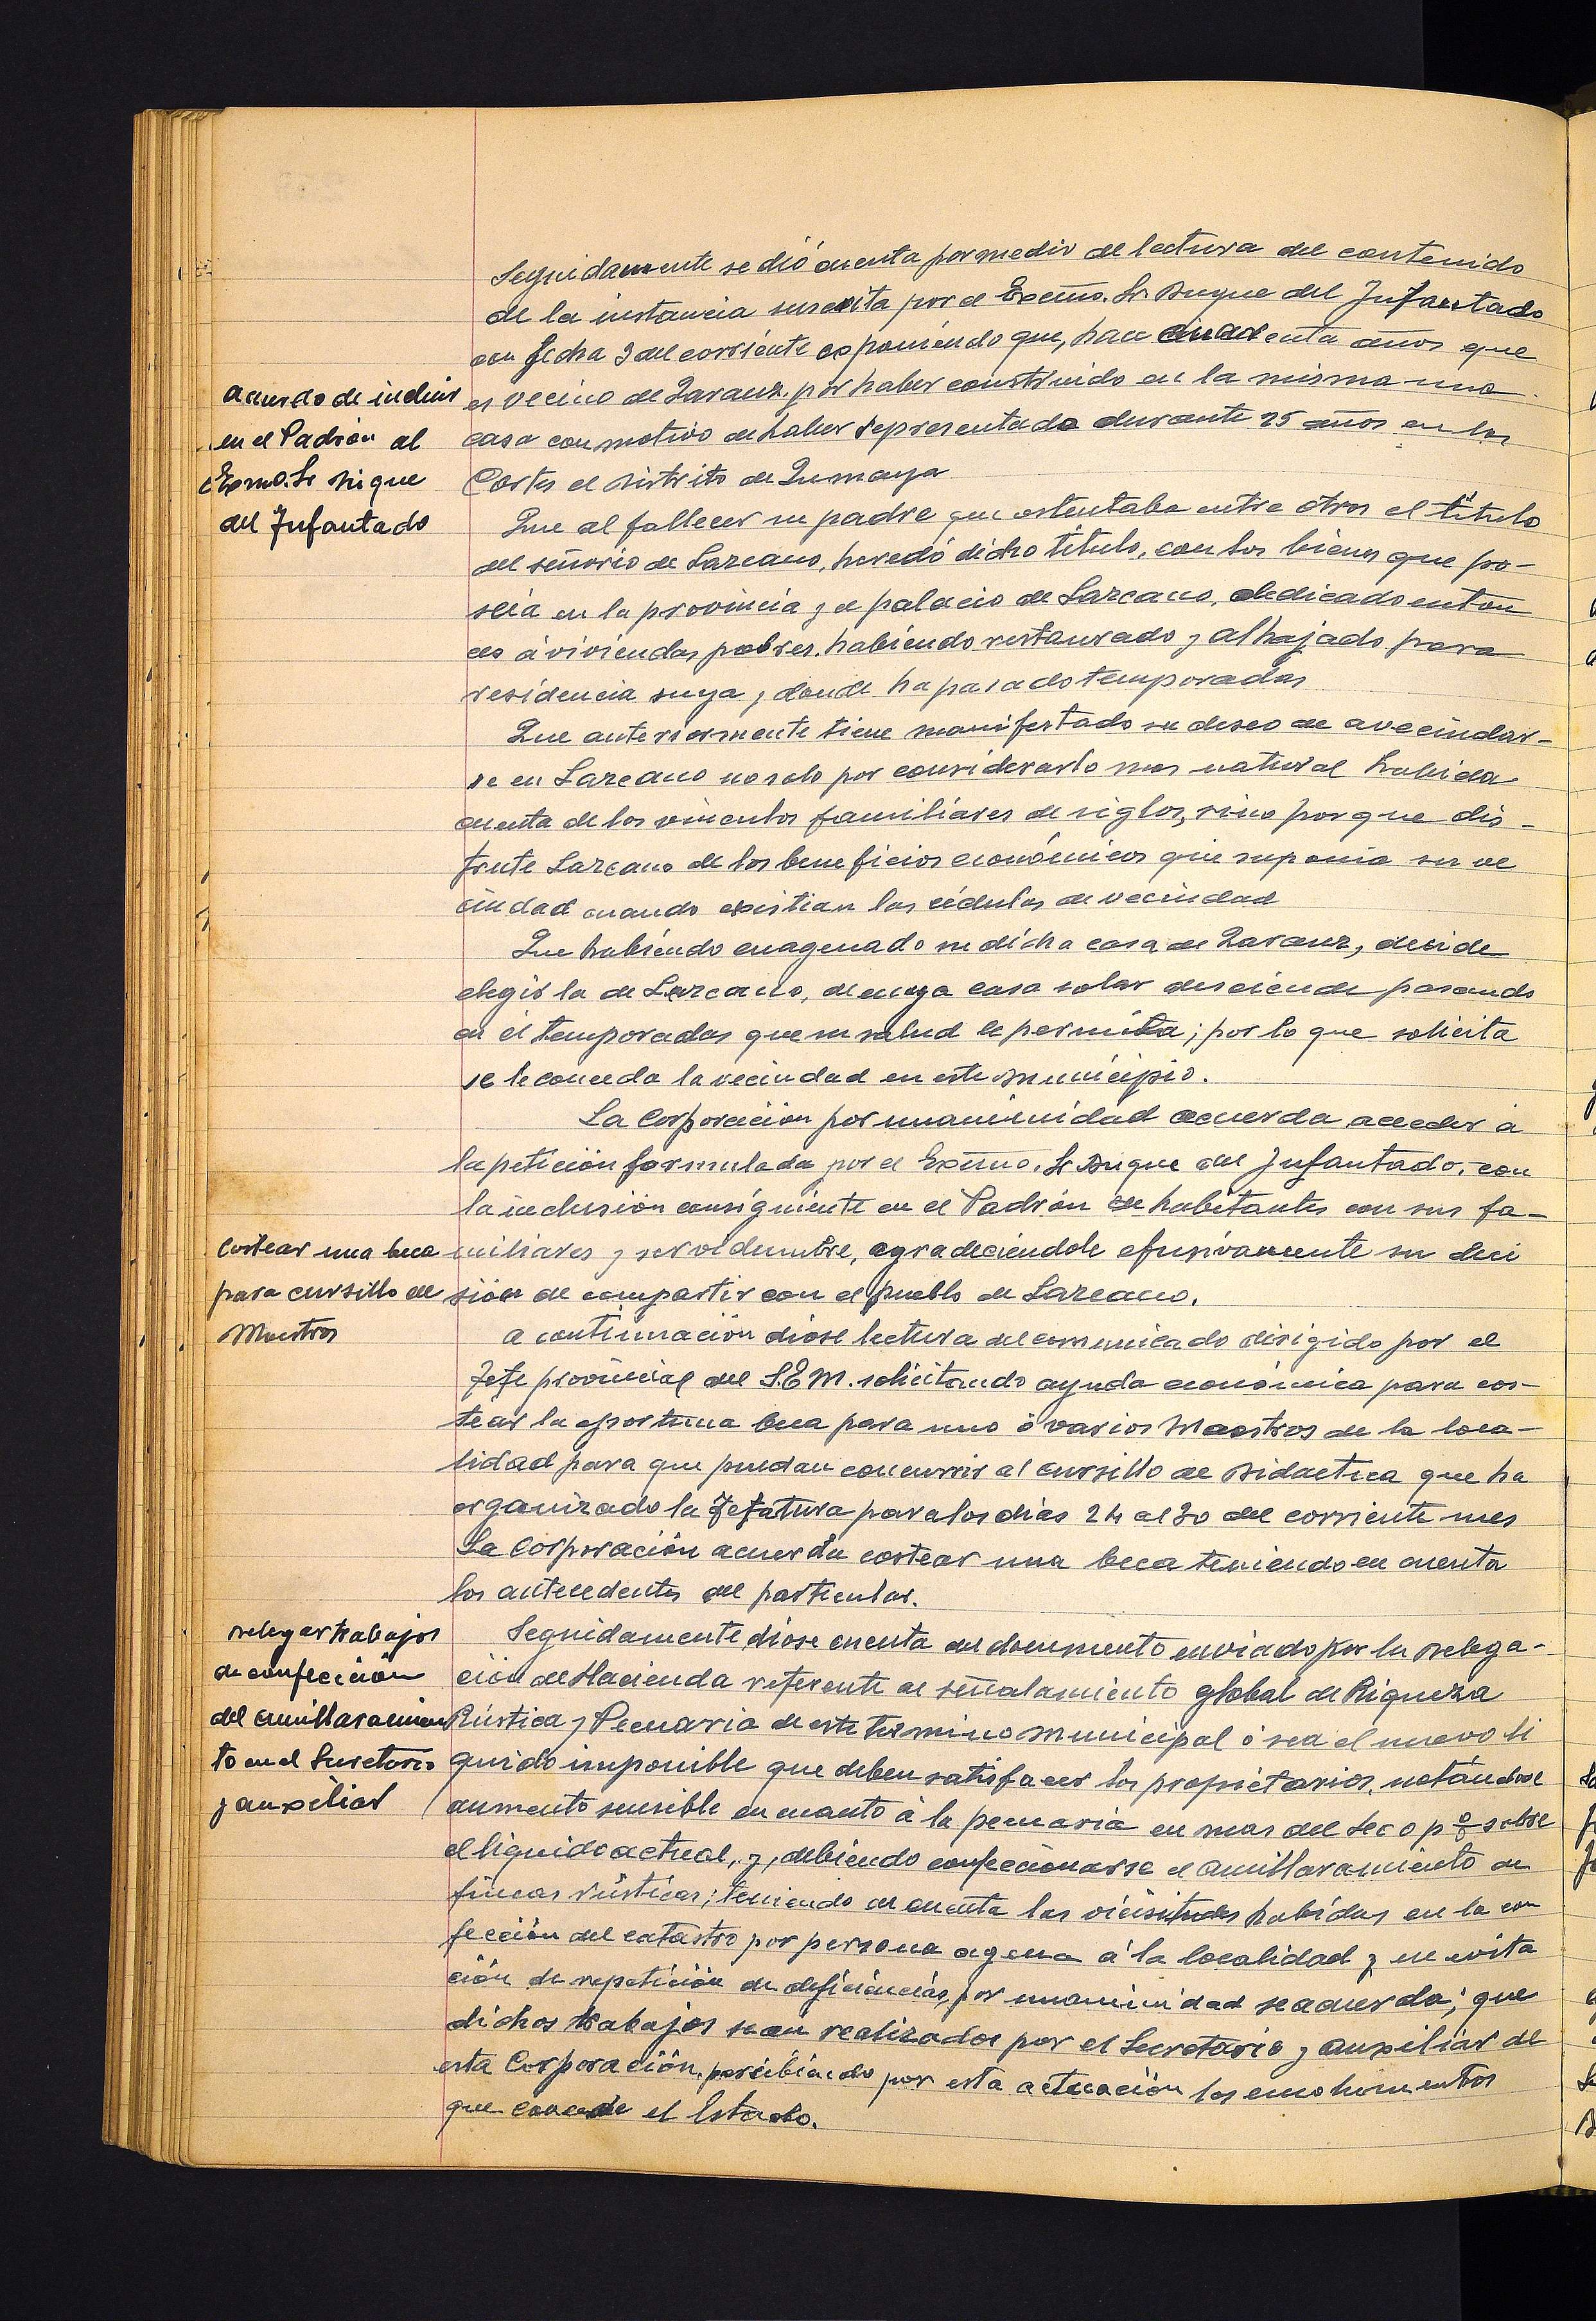 Seguidamente se dió cuenta por medio de lectura del contenido
de la instancia suscrita por el Excmo. Sr. Duque del Infantado
con fecha 3 del corriente exponiendo que, hace cincuenta años que
es vecino de Zarauz, por haber construido en la misma una
casa con motivo de haber representado durante 25 años en las
Cortes el distrito de Zumaya
Acuerdo de incluir
en el Padrón al
Exmo. Sr Duque
del Infantado
Que al fallecer su padre que ostentaba entre otros el título
del señorio de Lazcano, heredó dicho título, con los bienes que po-
seia en la provincia y el palacio de Lazcano, dedicado enton
ces á viviendas pobres, habiendo restaurado y alhajado para
residencia suya y donde ha pasado temporadas
Que anteriormente tiene manifestado su deseo de avecindar-
se en Lazcano no solo por considerarlo mas natural habida
cuenta de los vínculos familiares de siglos, sino porque dis-
frute Lazcano de los beneficios económicos que suponia su ve
cindad cuando existian las cédulas de vecindad
Que habiendo enagenado su dicha casa de Zarauz, decide
elegir la de Lazcano, de cuya casa solar desciende pasando
en él temporadas que su salud le permita; por lo que solicita
se le conceda la vecindad en este municipio.
La Corporación por unanimidad acuerda acceder á
la petición formulada por el Excmo. Sr Duque del Infantado, con
la inclusión consiguiente en el Padrón de habitantes con sus fa-
miliares y servidumbre, agradeciéndole efusivamente su deci
sión de compartir con el pueblo de Lazcano.
Costear una beca
para cursillo de
Maestros
A continuación dióse lectura del comunicado dirigido por el
Jefe provincial del S.E.M. solicitando ayuda económica para cos-
tear la oportuna beca para uno ó varios Maestros de la loca-
lidad para que puedan concurrir al cursillo de Didactica que ha
organizado la Jefatura para los dias 24 al 30 del corriente mes
La Corporación acuerda costear una beca teniendo en cuenta
los antecedentes del particular.
Delegar trabajos
de confección
del amillaramien
to en el Secretario
y auxiliar
Seguidamente dióse cuenta del documento enviado por la Delega-
ción de Hacienda referente al señalamiento global de Riqueza
Rústica y Pecuaria de este término municipal ó sea el nuevo li
quido imponible que deben satisfacer los propietarios, notándose
aumento sensible en cuanto á la pecuaria en mas del p% sobre
el liquido actual, y, debiendo confeccionarse el amillaramiento de
fincas rústicas; teniendo en cuenta las vicisitudes habidas en la con
fección del catastro por persona agena á la localidad y en evita
ción de repetición de deficiencias, por unanimidad se acuerda; que
dichos trabajos sean realizados por el Secretario y auxiliar de
esta Corporación, percibiendo por esta actuación los emolumentos
que concede el Estado.